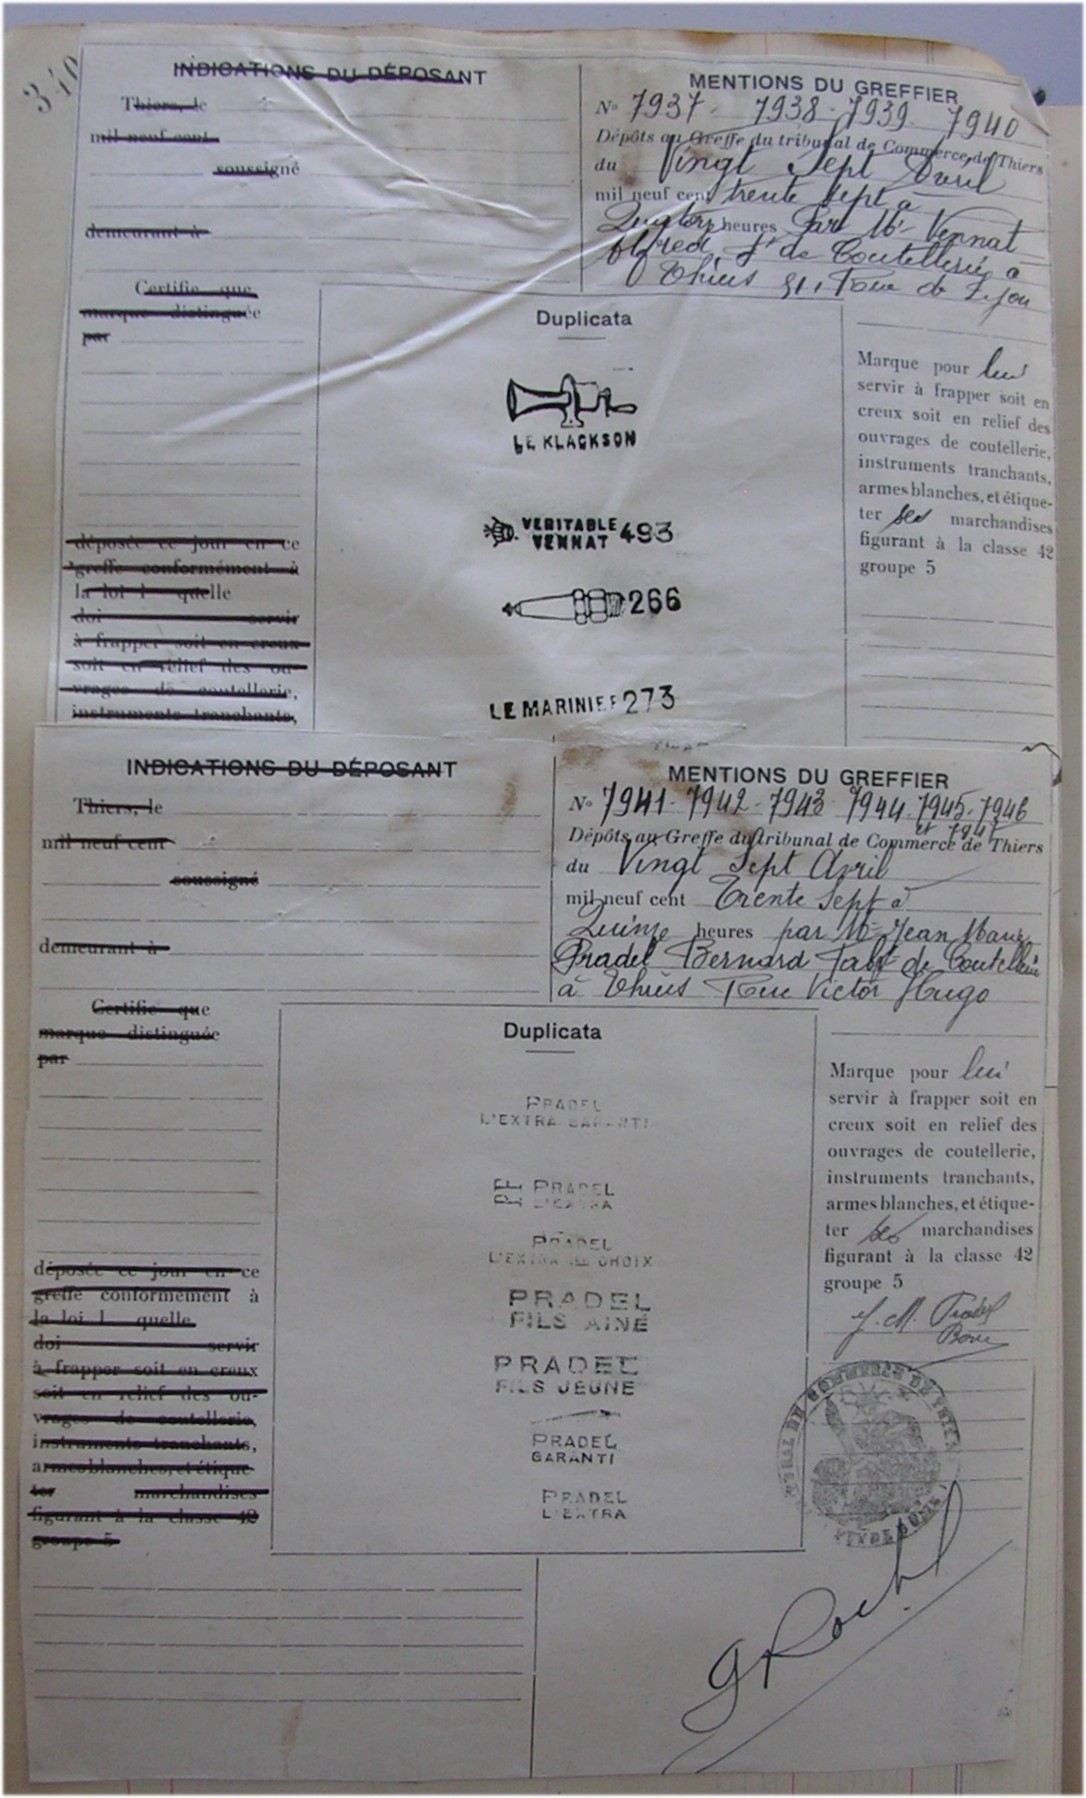 340
INDICATIONS DU DÉPOSANT
Thiers, le
mil neuf cent
soussigné
demeurant à
Certifie que
marque distinguée
par
déposée ce jour en ce
greffe conformément à
la loi l quelle
doi servir
à frapper soit en creux
soit en relief des ou-
vrages de coutellerie,
instruments tranchants,
MENTIONS DU GREFFIER
No 7937 - 7938 - 7939 - 7940
Dépôts au Greffe du tribunal de Commerce de Thiers
du Vingt Sept Avril
mil neuf cent trente sept à
heures par Mr Vennat
Alfred, ft de Coutellerie à
Thiers 51, Rue de Lyon
Duplicata
LE KLACKSON
VERITABLE
VENNAT 493
266
LE MARINIER 273
Marque pour lui
servir à frapper soit en
creux soit en relief des
ouvrages de coutellerie,
instruments tranchants,
armes blanches, et étique-
ter ses marchandises
figurant à la classe 42
groupe 5
INDICATIONS DU DÉPOSANT
Thiers, le
mil neuf cent
soussigné
demeurant à
Certifie que
marque distinguée
par
déposée ce jour en ce
greffe conformément à
la loi l quelle
doi servir
à frapper soit en creux
soit en relief des ou-
vrages de coutellerie,
instruments tranchants,
armes blanches, et étique-
ter marchandises
figurant à la classe 42
groupe 5
MENTIONS DU GREFFIER
No 7941 - 7942 - 7943 - 7944 - 7945 - 7946
et 7947
Dépôts au Greffe du tribunal de Commerce de Thiers
du Vingt Sept Avril
mil neuf cent Trente Sept à
Quinze heures par Mr Jean Marie
Pradel Bernard fabt de Coutellerie
à Thiers Rue Victor Hugo
Duplicata
PRADEL
L'EXTRA GARANTI
PRADEL
L'EXTRA
PRADEL
L'EXTRA CHOIX
PRADEL
FILS AINÉ
PRADEL
FILS JEUNE
PRADEL
GARANTI
PRADEL
L'EXTRA
Marque pour lui
servir à frapper soit en
creux soit en relief des
ouvrages de coutellerie,
instruments tranchants,
armes blanches, et étique-
ter ses marchandises
figurant à la classe 42
groupe 5
J. M. Pradel
TRIBUNAL DE COMMERCE DE THIERS
PUY DE DÔME